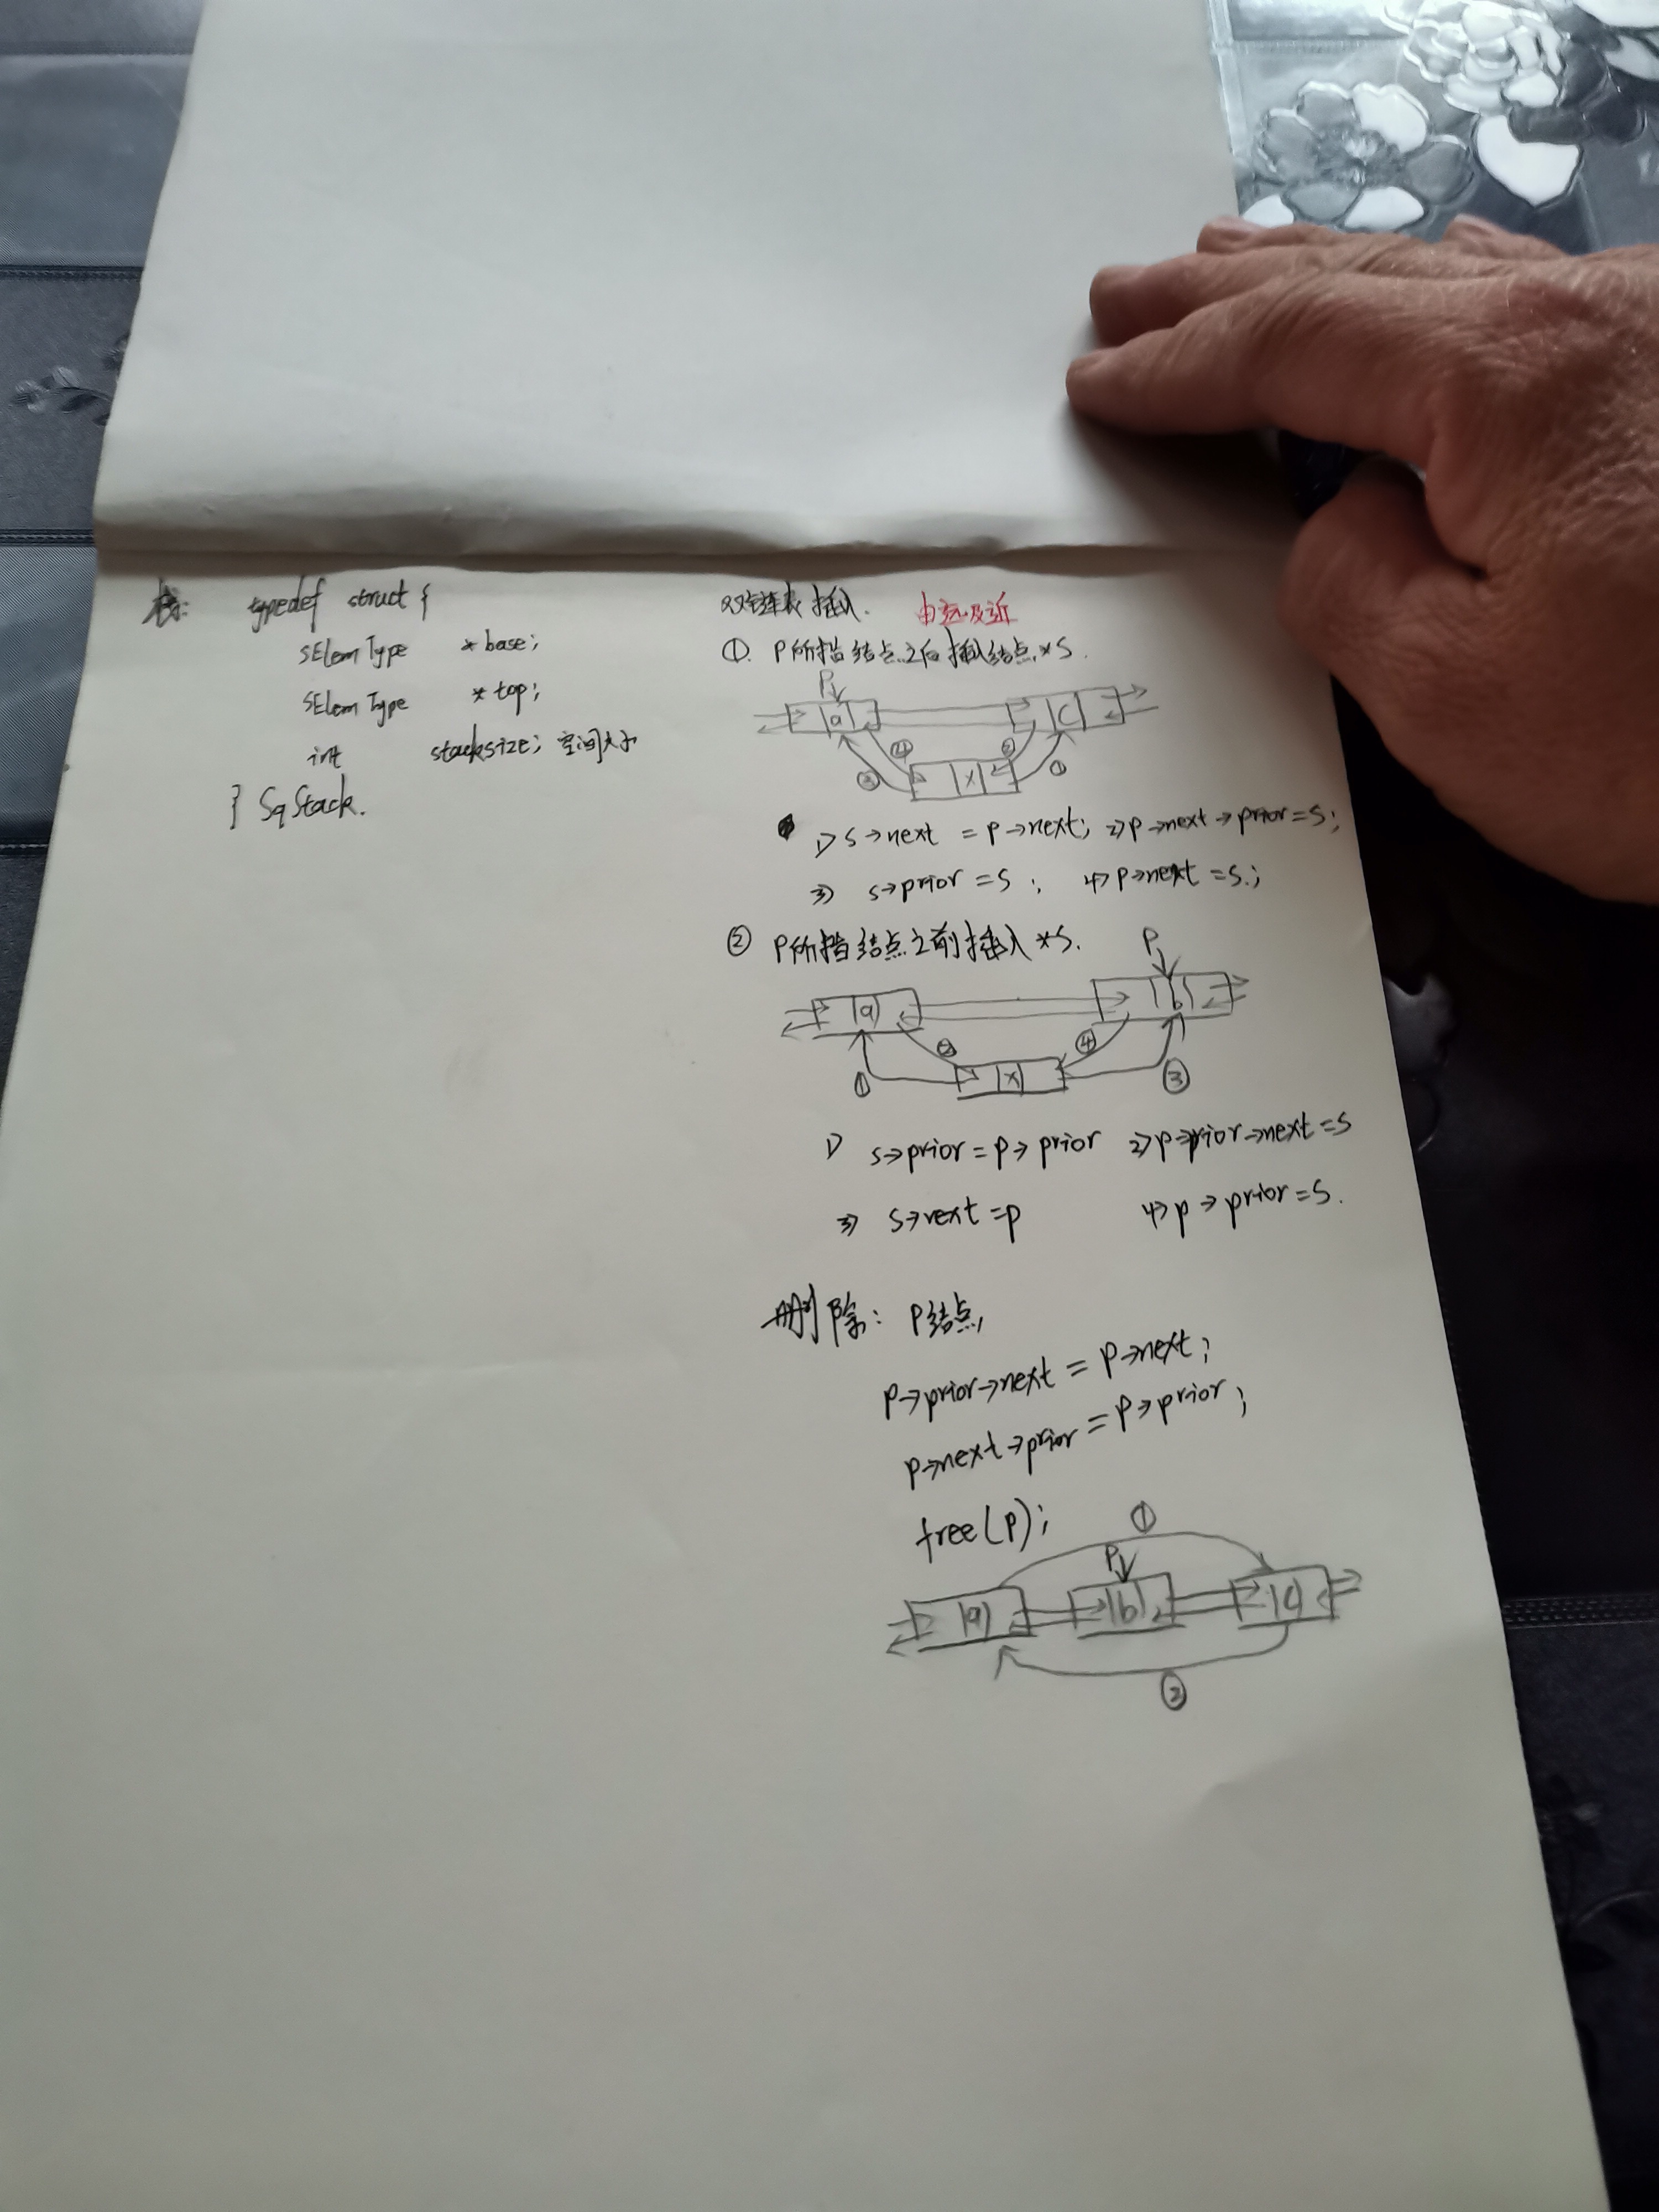 栈: typedef struct {
SElemType *base;
SElemType *top;
int stacksize; 空间大小
} SqStack.
双链表插入. 由远及近
①. P所指结点之后插入结点*S.
P
a c
④ ② ③ ①
x
1> s→next = p→next; 2> p→next→prior=s;
3> s→prior = s ; 4> p→next = s.;
② P所指结点之前插入*S.
P
a b
① ② ④ ③
x
1> s→prior = p→prior 2> p→prior→next=s
3> s→next=p 4> p→prior=s.
删除: P结点,
p→prior→next = p→next;
p→next→prior = p→prior;
free(p);
①
P
a b c
②